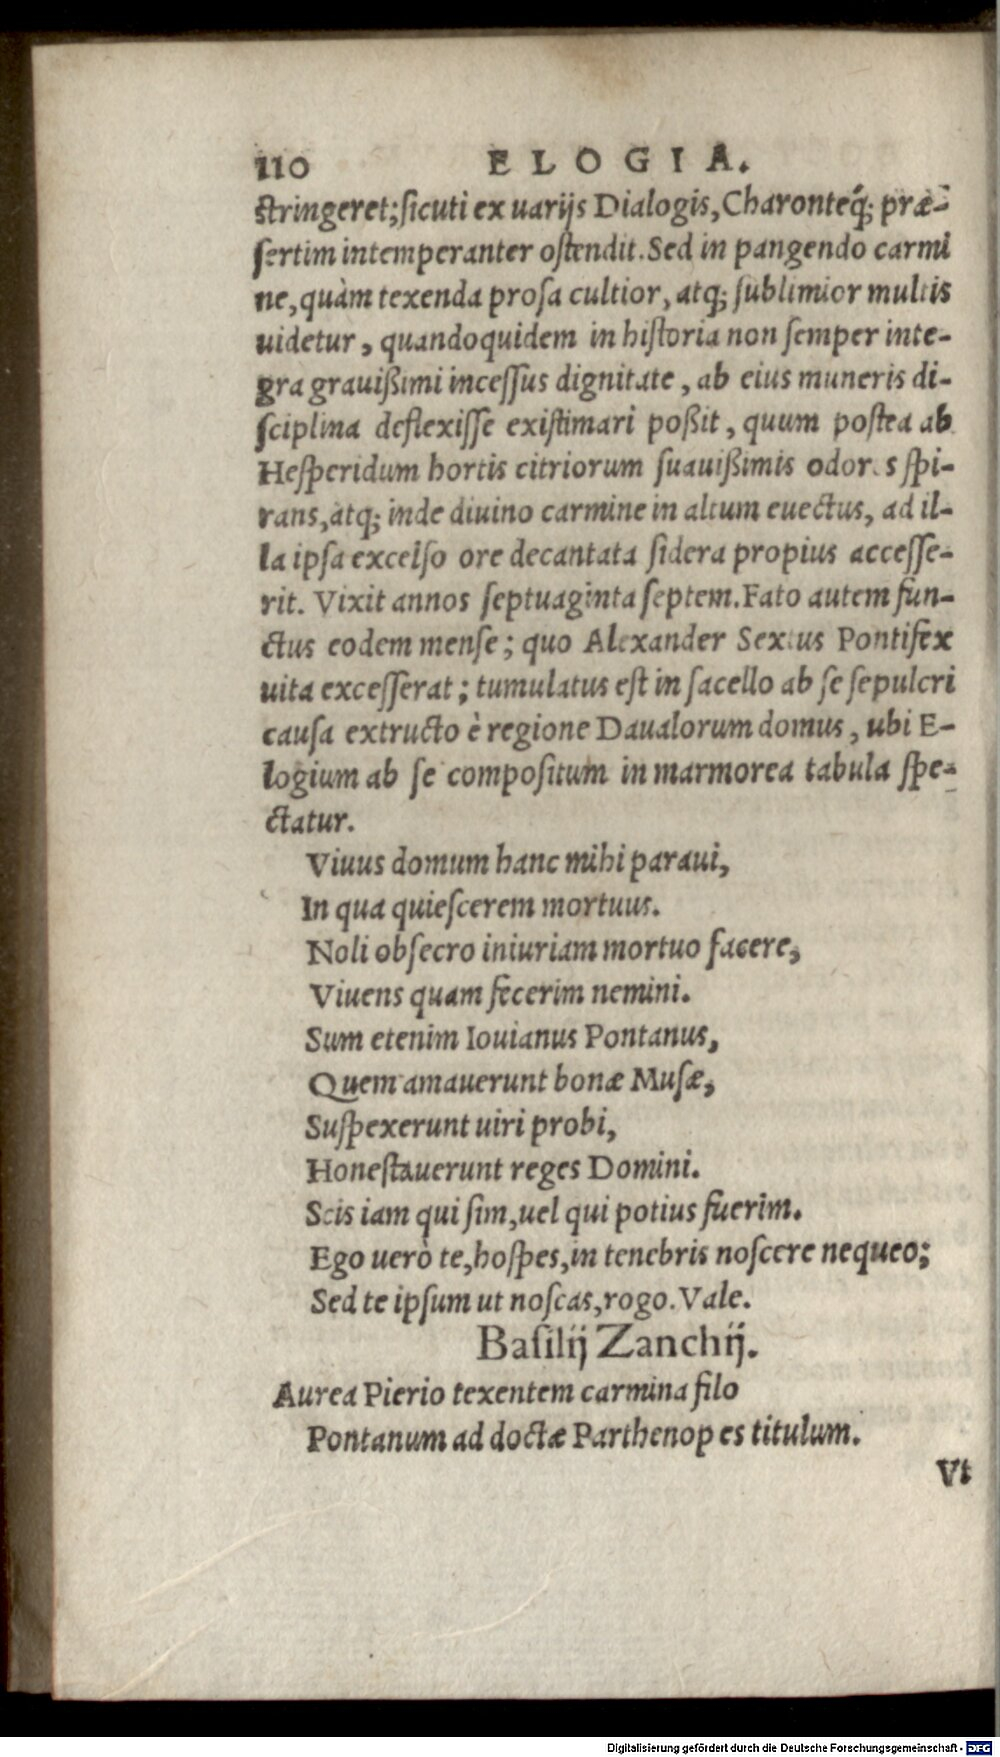 110 ELOGIA.
ſtringeret; ſicuti ex uarijs Dialogis, Charonteq́; præ-
ſertim intemperanter oſtendit. Sed in pangendo carmi
ne, quàm texenda proſa cultior, atq; ſublimior multis
uidetur, quandoquidem in hiſtoria non ſemper inte-
gra grauißimi inceſſus dignitate, ab eius muneris di-
ſciplina deflexiſſe exiſtimari poßit, quum poſtea ab
Heſperidum hortis citriorum ſuauißimis odores ſpi-
rans, atq; inde diuino carmine in altum euectus, ad il-
la ipſa excelſo ore decantata ſidera propius acceſſe-
rit. Vixit annos ſeptuaginta ſeptem. Fato autem fun-
ctus eodem menſe; quo Alexander Sextus Pontifex
uita exceſſerat; tumulatus eſt in ſacello ab ſe ſepulcri
cauſa extructo è regione Daualorum domus, ubi E-
logium ab ſe compoſitum in marmorea tabula ſpe-
ctatur.
Viuus domum hanc mihi paraui,
In qua quieſcerem mortuus.
Noli obſecro iniuriam mortuo facere,
Viuens quam fecerim nemini.
Sum etenim Iouianus Pontanus,
Quem amauerunt bonæ Muſæ,
Suſpexerunt uiri probi,
Honeſtauerunt reges Domini.
Scis iam qui ſim, uel qui potius fuerim.
Ego uerò te, hoſpes, in tenebris noſcere nequeo;
Sed te ipſum ut noſcas, rogo. Vale.
Baſilij Zanchij.
Aurea Pierio texentem carmina filo
Pontanum ad doctæ Parthenopes titulum.
Vt
Digitalisierung gefördert durch die Deutsche Forschungsgemeinschaft - DFG